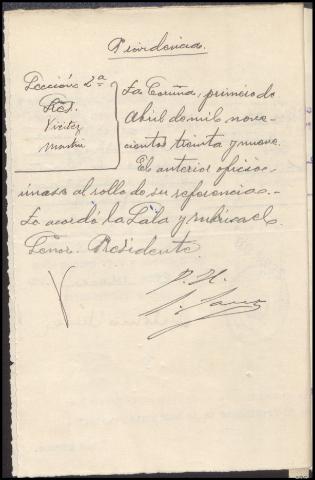 Providencia.
Sección 2ª
Rés.
Vieitez
La Coruña, primero de
Abril de mil nove-
cientos treinta y nueve.
El anterior oficio ú-
nase al rollo de su referencia.-
Lo acordó la Sala y rubrica el
Señor Presidente.